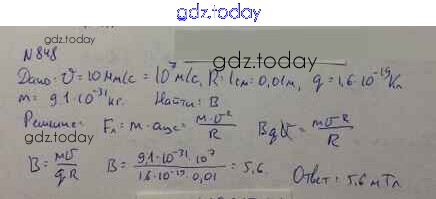 gdz.today
gdz.today
N 848
gdz.today
Дано: υ = 10 Мм/с = 10⁷ м/с, R = 1см = 0,01м, q = 1,6·10⁻¹⁹Кл
m = 9,1·10⁻³¹ кг. Найти: B
Решение: Fл = m·aцс = mυ²/R Bqυ = mυ²/R
gdz.today
B = mυ/qR B = 9,1·10⁻³¹·10⁷/1,6·10⁻¹⁹·0,01 = 5,6. Ответ: 5,6 мТл
gdz.today